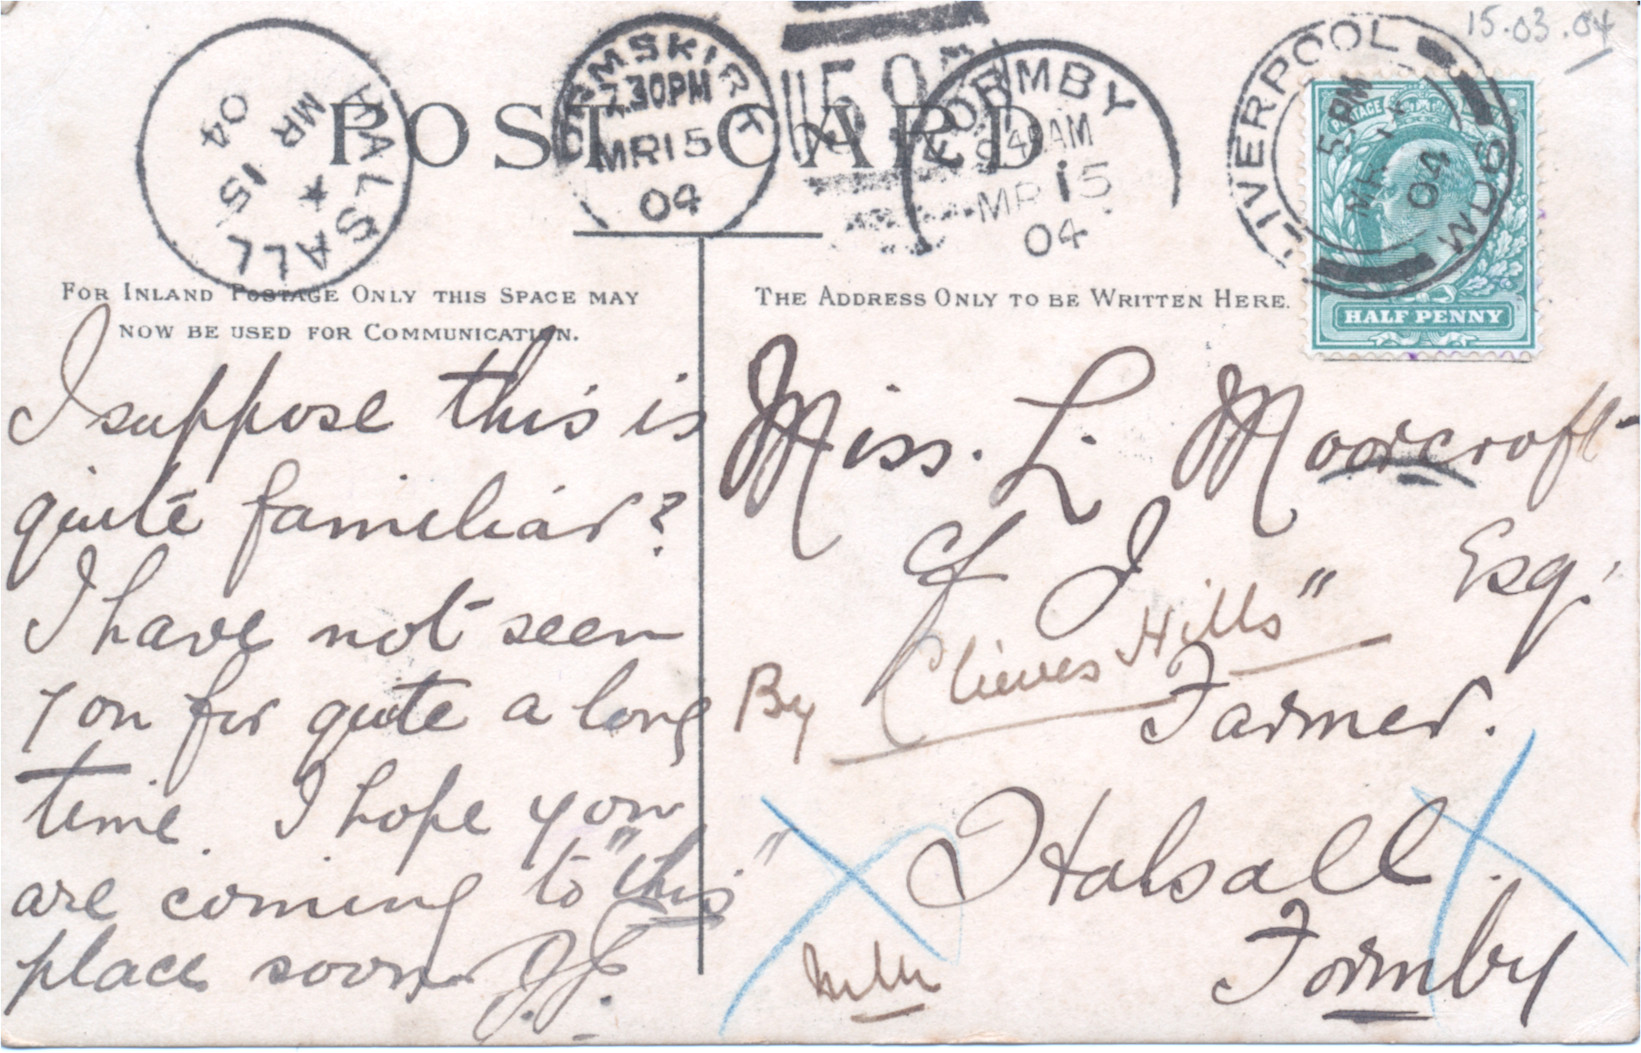 15.03.04
POST CARD
HALSALL
MR 15
04
ORMSKIRK
7.30PM
MR15
04
FORMBY
AM
MR 15
04
LIVERPOOL
5 PM
MR 15
04
POSTAGE
HALF PENNY
FOR INLAND POSTAGE ONLY THIS SPACE MAY
NOW BE USED FOR COMMUNICATION.
THE ADDRESS ONLY TO BE WRITTEN HERE.
I suppose this is
quite familiar?
I have not seen
you for quite a long
time. I hope you
are coming to "this"
place soon J.J.
Miss. L. Moorcroft
c/ J Esq.
By Clieves Hills"
Farmer.
Halsall.
Formby